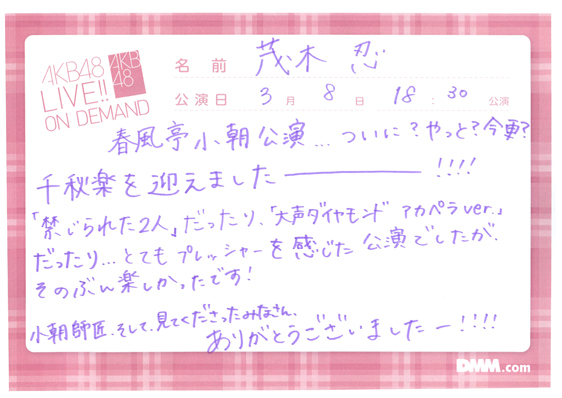 AKB48
LIVE!!
ON DEMAND
AKB
48
名前 茂木 忍
公演日 3月 8日 18:30 公演
春風亭小朝公演...ついに?やっと?今更?
千秋楽を迎えました――――!!!!
「禁じられた2人」だったり、「大声ダイヤモンド アカペラver.」
だったり...とてもプレッシャーを感じた公演でしたが、
そのぶん楽しかったです!
小朝師匠、そして、見てくださったみなさん、
ありがとうございましたー!!!!
DMM.com